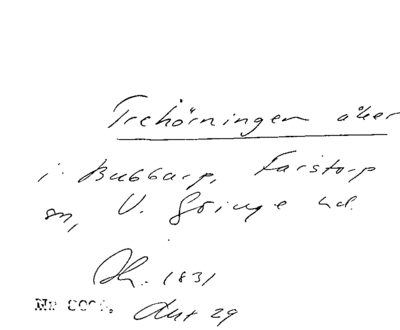 Trehörningen åker
i Bubbarp, Farstorp
sn, V. Göinge hd.
Sk. 1831
Akt 29